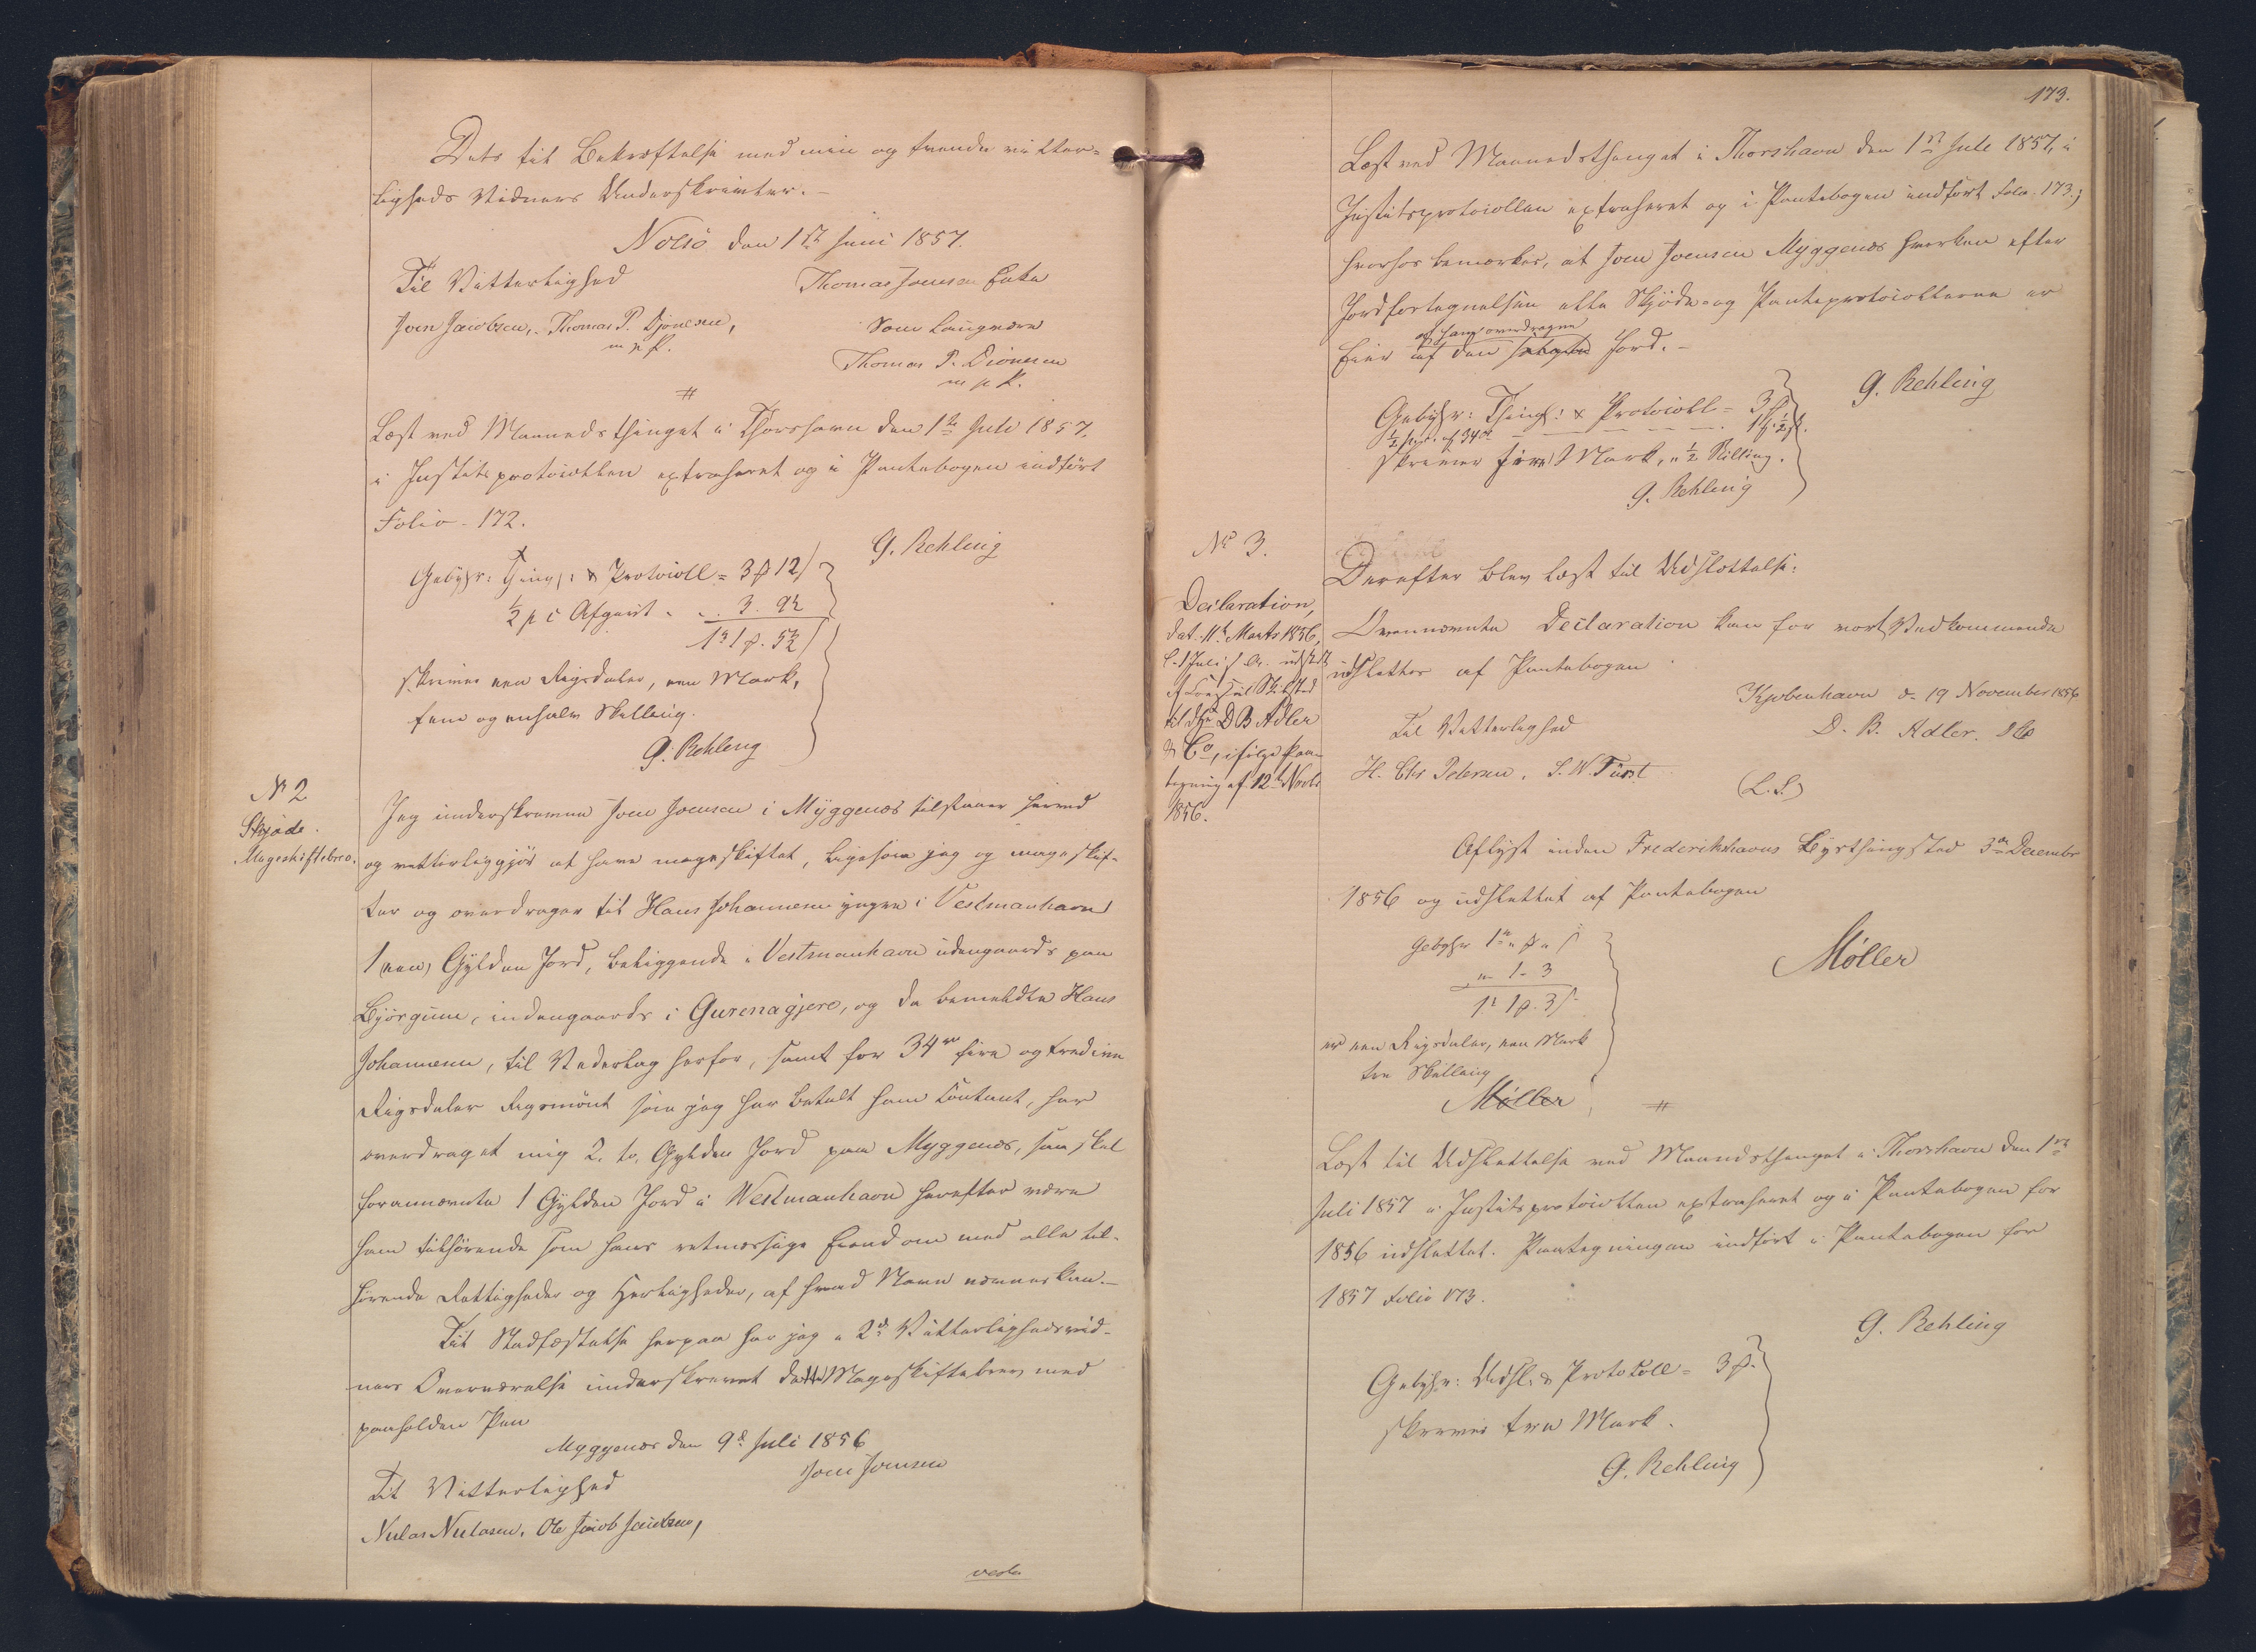 Dets til Bekræftelse med min og tvende vitter-
ligheds Vidners Underskrivter. -
Nolsö den 1ste Juni 1857.
Til Vitterlighed
Thomas Joensen Enke
Joen Jacobsen, Thomas P. Djonesen,
m p k.
Som Laugværn
Thomas P. Dionesen
m p k.
#
Læst ved Maanedsthinget i Thorshavn den 1ste Juli 1857.
i Justitsprotocollen extraheret og i Pantebogen indført
Folio 172.
G. Rehling
Gebyhr: Thingl: & Protocoll = 3 # 12
½ p C Afgivt - 3. 9½
1 rd 1 #. 5½
skriver een Rigsdaler, een Mark,
fem og enhalv Skilling.
G. Rehling
No 2
Skjøde.
Mageskiftebrev.
Jeg underskrevne Joen Joensen i Myggenæs tilstaaer herved
og vitterliggjör at have mageskiftet, ligesom jeg og mageskif-
ter og overdrager til Hans Johannesen yngre i Vestmanhavn
1 (een) Gylden Jord, beliggende i Vestmanhavn udengaards paa
Bjørgum, indengaards i Gurenagjere, og da bemeldte Hans
Johannesen, til Vederlag herfor, samt for 34 rd fire og tredive
Rigsdaler Rigsmönt som jeg har betalt ham contant, har
overdraget mig 2. to, Gylden Jord paa Myggenæs, saa skal
forannævnte 1 Gylden Jord i Westmanhavn herefter være
ham tilhörende som hans retmæssige Eiendom med alle til-
hörende Rettigheder og Herligheder, af hvad Navn nævnes kan. -
Til Stadfæstelse herpaa har jeg i 2de Vitterlighedsvid-
ners Overværelse underskrevet dette Mageskiftebrev med
paaholden Pen
Myggenæs den 9de Juli 1856
Joen Joensen
Til Vitterlighed
Niclas Niclasen, Ole Jacob Jacobsen,
verte
173.
Læst ved Maanedsthinget i Thorshavn den 1ste Juli 1857, i
Justitsprotocollen extraheret og i Pantebogen indfört Folio 173;
hvorhos bemærkes, at Joen Joensen Myggenæs hverken efter
Jordfortegnelsen eller Skjöde- og Panteprotocollerne er
af ham overdragne
Eier af den solgte Jord. -
G. Rehling
Gebyhr: Thingl: & Protocoll = 3 #
½ pct. af 34 rd - - - - 1 #. ½ s.
skriver fire Mark, ½ Skilling.
G. Rehling
No 3.
Declaration,
dat. 11te Marts 1856,
til D B Adler
& Co, ifølge Paa-
tegning af 12te Novbr
1856.
Derefter blev læst til Udslettelse:
Ovennævnte Declaration kan for vort Vedkommende
udslettes af Pantebogen
Kjøbenhavn d. 19 November 1856
Til Vitterlighed
D. B. Adler. & Co
H. Chr Petersen. S. W. Fürst
(L.S.)
Aflyst inden Frederikshavns Byethingsted 3die December
1856 og udslettet af Pantebogen
Møller
Gebyhr 1 rd " # " s
" 1 - 3
1 rd 1 #. 3 s
er een Rigsdaler, een Mark
tre Skilling
Møller
#
Læst til Udslettelse ved Maanedsthinget i Thorshavn den 1ste
Juli 1857 i Justitsprotocollen extraheret og i Pantebogen for
1856 udslettet. Paategningen indført i Pantebogen for
1857 Folio 173.
G. Rehling
Gebyhr: Udsl. & Protokoll = 3 #.
skriver tre Mark.
G. Rehling